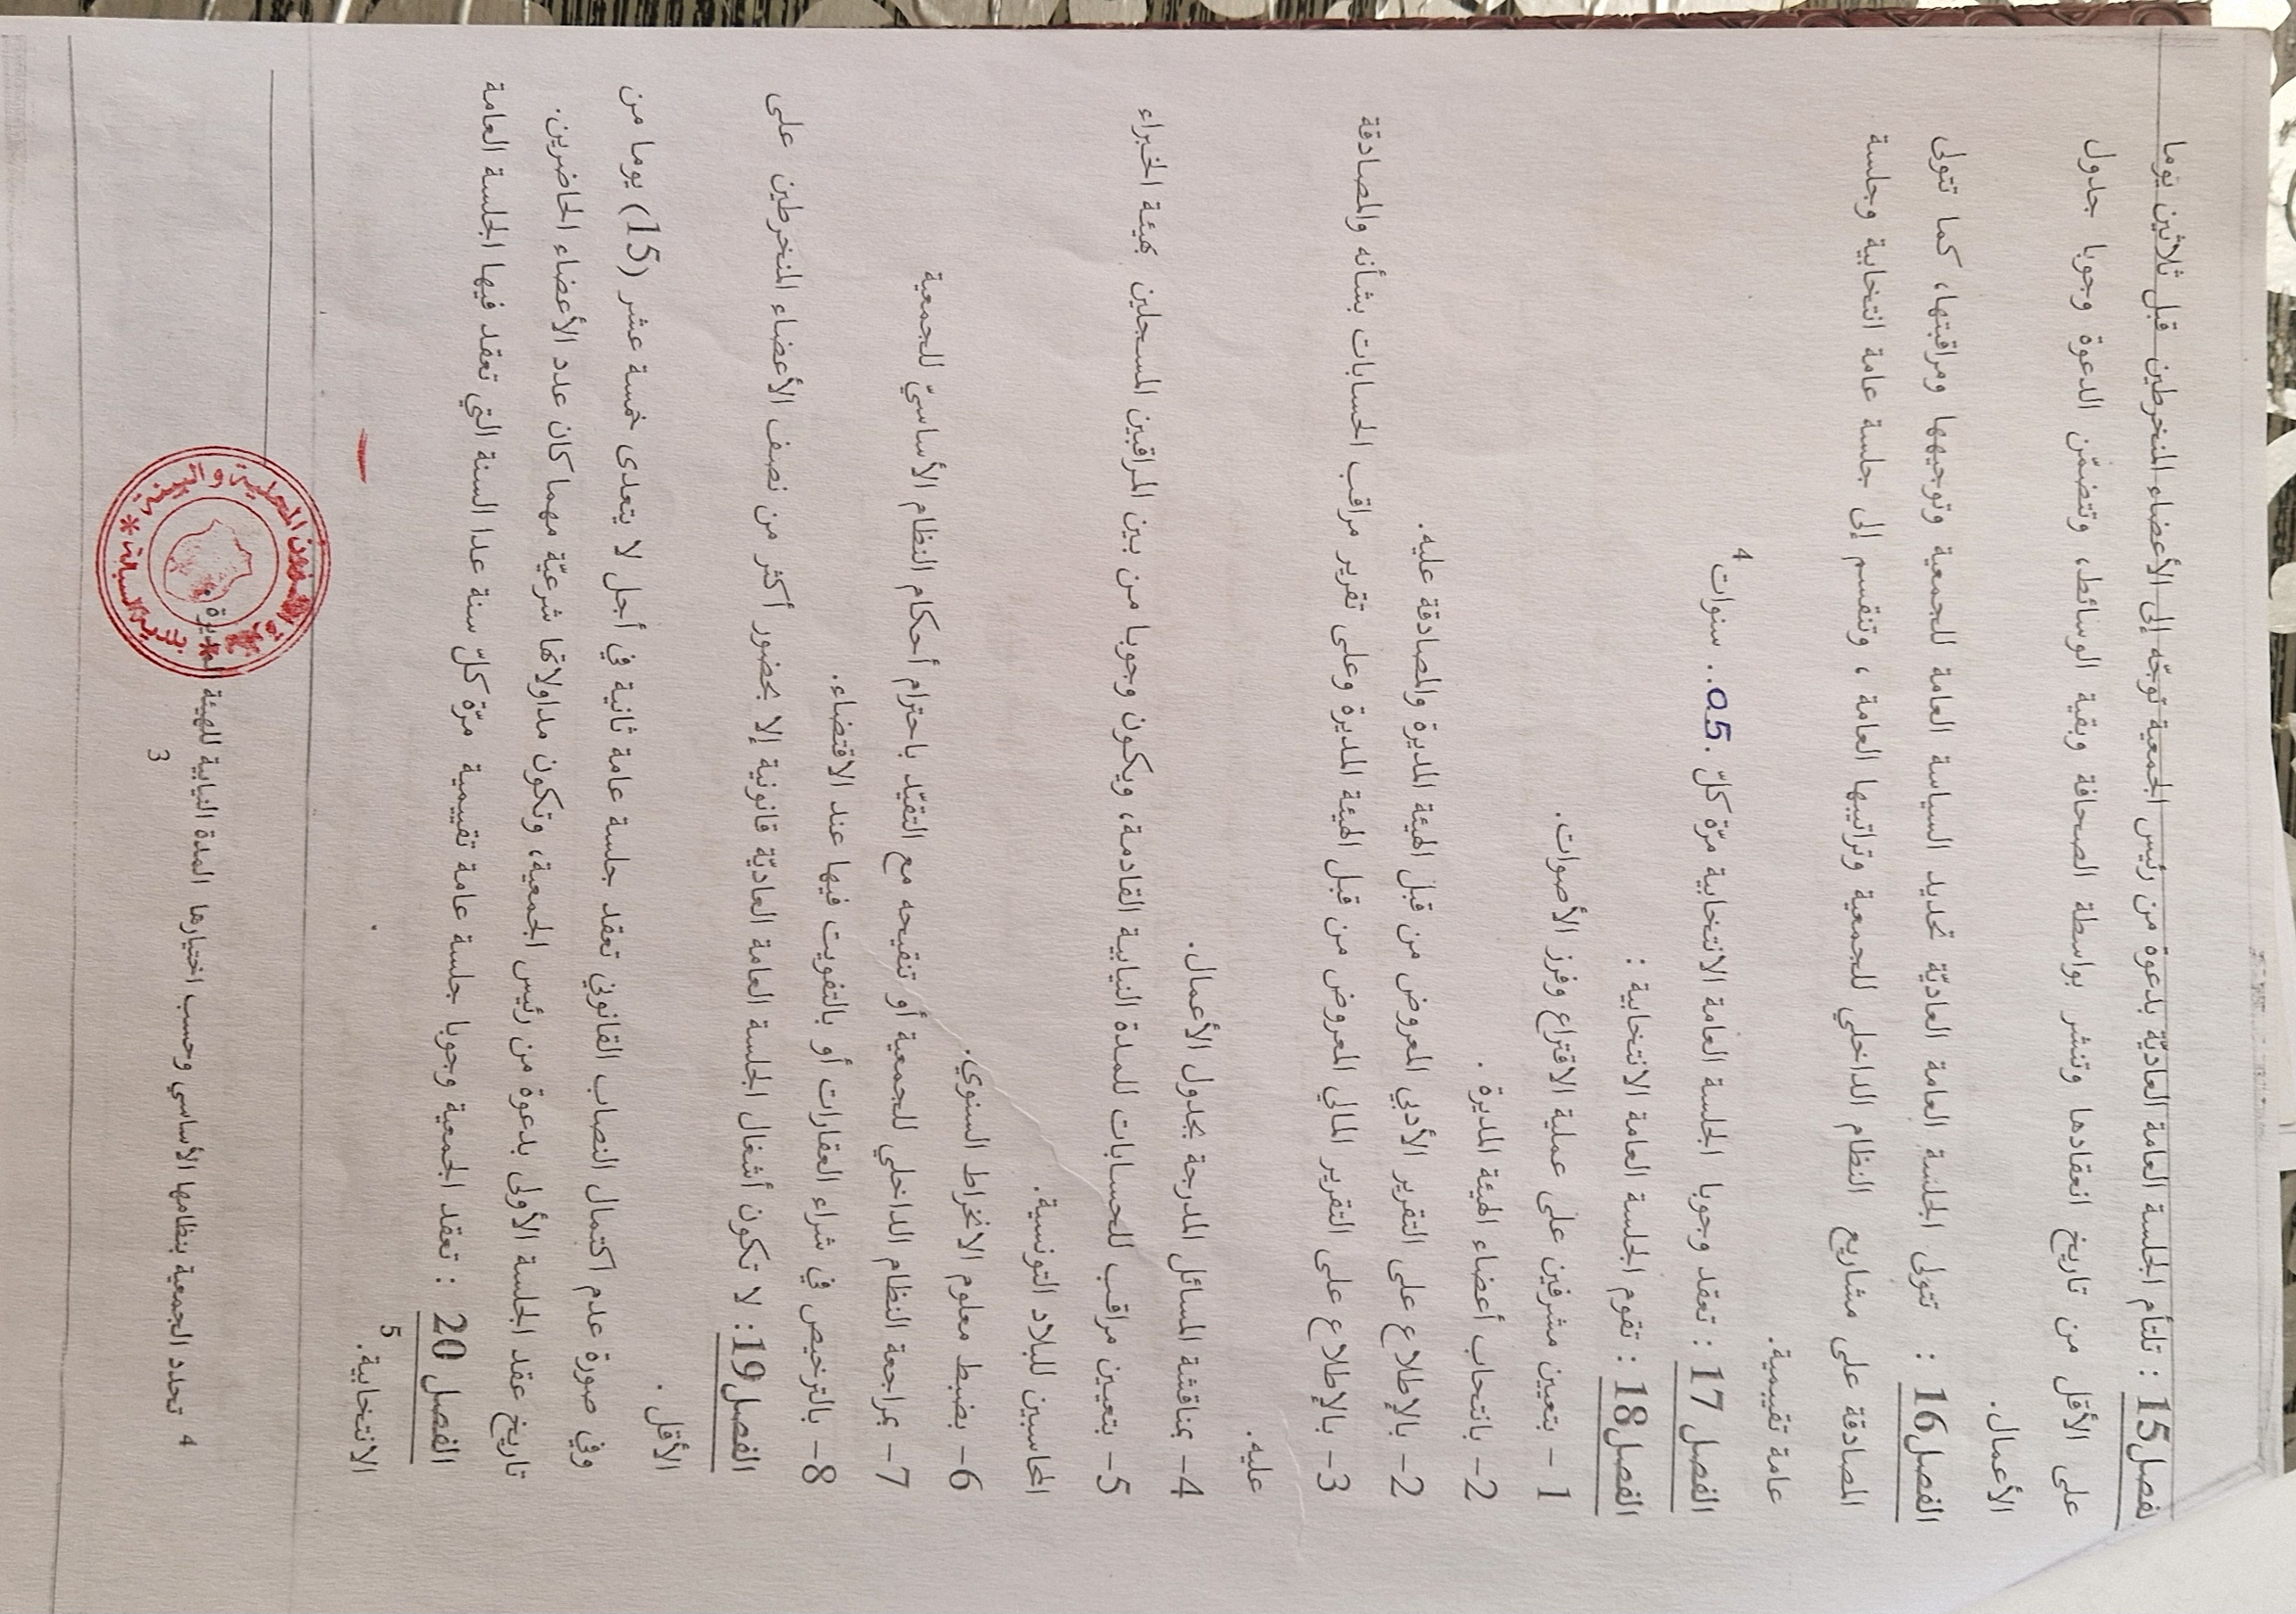 فصل 15 : تلتأم الجلسة العامة العاديّة بدعوة من رئيس الجمعية توجّه إلى الأعضاء المنخرطين قبل ثلاثين يوما
على الأقل من تاريخ انعقادها وتنشر بواسطة الصحافة وبقية الوسائط، وتتضمّن الدعوة وجوبا جدول
الأعمال.
الفصل 16 : تتولى الجلسة العامة العاديّة تحديد السياسة العامة للجمعية وتوجيهها ومراقبتها، كما تتولى
المصادقة على مشاريع النظام الداخلي للجمعية وتراتيبها العامة ، وتنقسم إلى جلسة عامة انتخابية وجلسة
عامة تقييمية.
الفصل 17 : تعقد وجوبا الجلسة العامة الانتخابية مرّة كلّ .05.. سنوات 4
الفصل 18 : تقوم الجلسة العامة الانتخابية :
1 - بتعيين مشرفين على عملية الاقتراع وفرز الأصوات.
2- بانتخاب أعضاء الهيئة المديرة .
2- بالإطلاع على التقرير الأدبي المعروض من قبل الهيئة المديرة والمصادقة عليه.
3- بالإطلاع على التقرير المالي المعروض من قبل الهيئة المديرة وعلى تقرير مراقب الحسابات بشأنه والمصادقة
عليه.
4- بمناقشة المسائل المدرجة بجدول الأعمال.
5- بتعيين مراقب للحسابات للمدة النيابية القادمة، ويكون وجوبا من بين المراقبين المسجلين بهيئة الخبراء
المحاسبين للبلاد التونسية.
6- بضبط معلوم الانخراط السنوي.
7- بمراجعة النظام الداخلي للجمعية أو تنقيحه مع التقيّد باحترام أحكام النظام الأساسيّ للجمعية
8- بالترخيص في شراء العقارات أو بالتفويت فيها عند الاقتضاء.
الفصل 19: لا تكون أشغال الجلسة العامة العاديّة قانونية إلا بحضور أكثر من نصف الأعضاء المنخرطين على
الأقل .
وفي صورة عدم اكتمال النصاب القانوني تعقد جلسة عامة ثانية في أجل لا يتعدى خمسة عشر (15) يوما من
تاريخ عقد الجلسة الأولى بدعوة من رئيس الجمعية، وتكون مداولاتها شرعيّة مهما كان عدد الأعضاء الحاضرين.
الفصل 20 : تعقد الجمعية وجوبا جلسة عامة تقييمية مرّة كلّ سنة عدا السنة التي تعقد فيها الجلسة العامة
الانتخابية. 5
4 تحدد الجمعية بنظامها الأساسي وحسب اختيارها المدة النيابية للهيئة المديرة.
3
المحلية والبيئة
بلدية